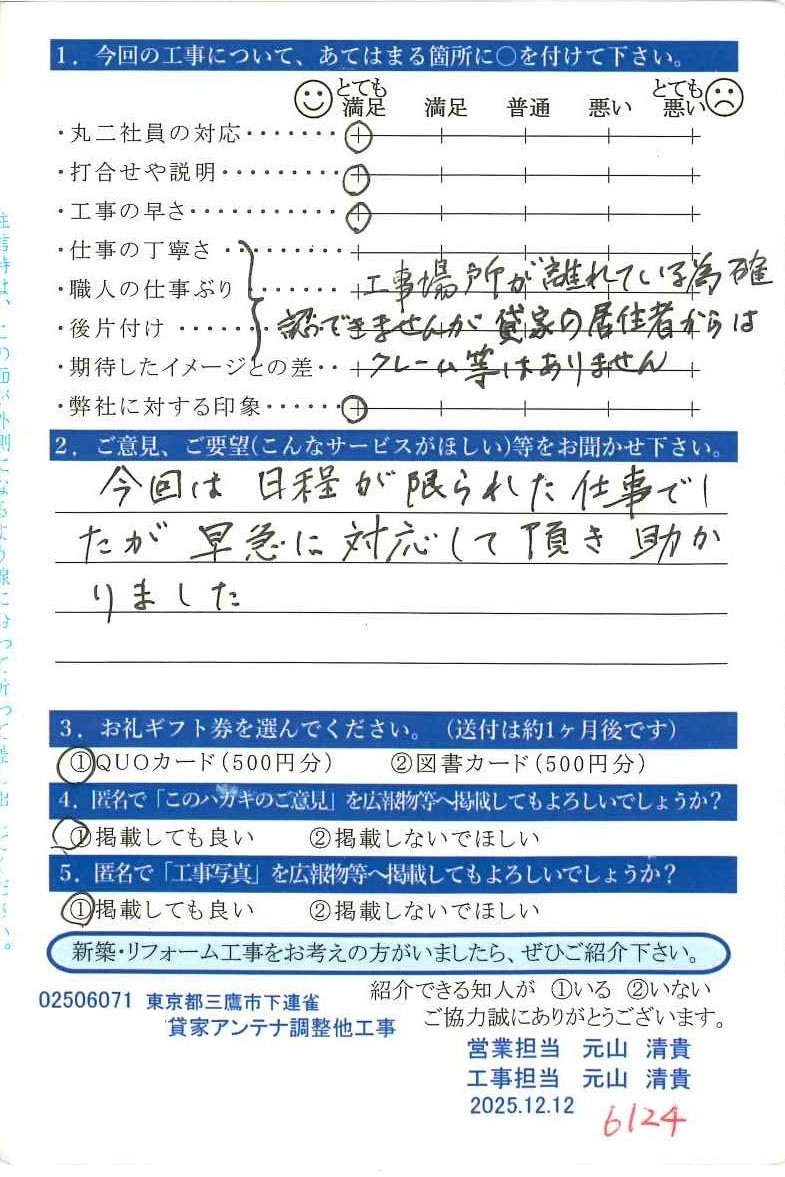 1．今回の工事について、あてはまる箇所に○を付けて下さい。
とても満足 満足 普通 悪い とても悪い
・丸二社員の対応・・・・・・・
・打合せや説明・・・・・・・・・
・工事の早さ・・・・・・・・・・・
・仕事の丁寧さ・・・・・・・・・
・職人の仕事ぶり・・・・・・・
・後片付け・・・・・・・
・期待したイメージとの差・・
・弊社に対する印象・・・・・・
工事場所が離れている為確
認できませんが貸家の居住者からは
クレーム等はありません
2．ご意見、ご要望(こんなサービスがほしい)等をお聞かせ下さい。
今回は日程が限られた仕事でし
たが早急に対応して頂き助か
りました
3．お礼ギフト券を選んでください。（送付は約1ヶ月後です）
①QUOカード(500円分) ②図書カード(500円分)
4．匿名で「このハガキのご意見」を広報物等へ掲載してもよろしいでしょうか？
①掲載しても良い ②掲載しないでほしい
5．匿名で「工事写真」を広報物等へ掲載してもよろしいでしょうか？
①掲載しても良い ②掲載しないでほしい
新築・リフォーム工事をお考えの方がいましたら、ぜひご紹介下さい。
紹介できる知人が ①いる ②いない
ご協力誠にありがとうございます。
02506071 東京都三鷹市下連雀
貸家アンテナ調整他工事
営業担当 元山 清貴
工事担当 元山 清貴
2025.12.12
6124